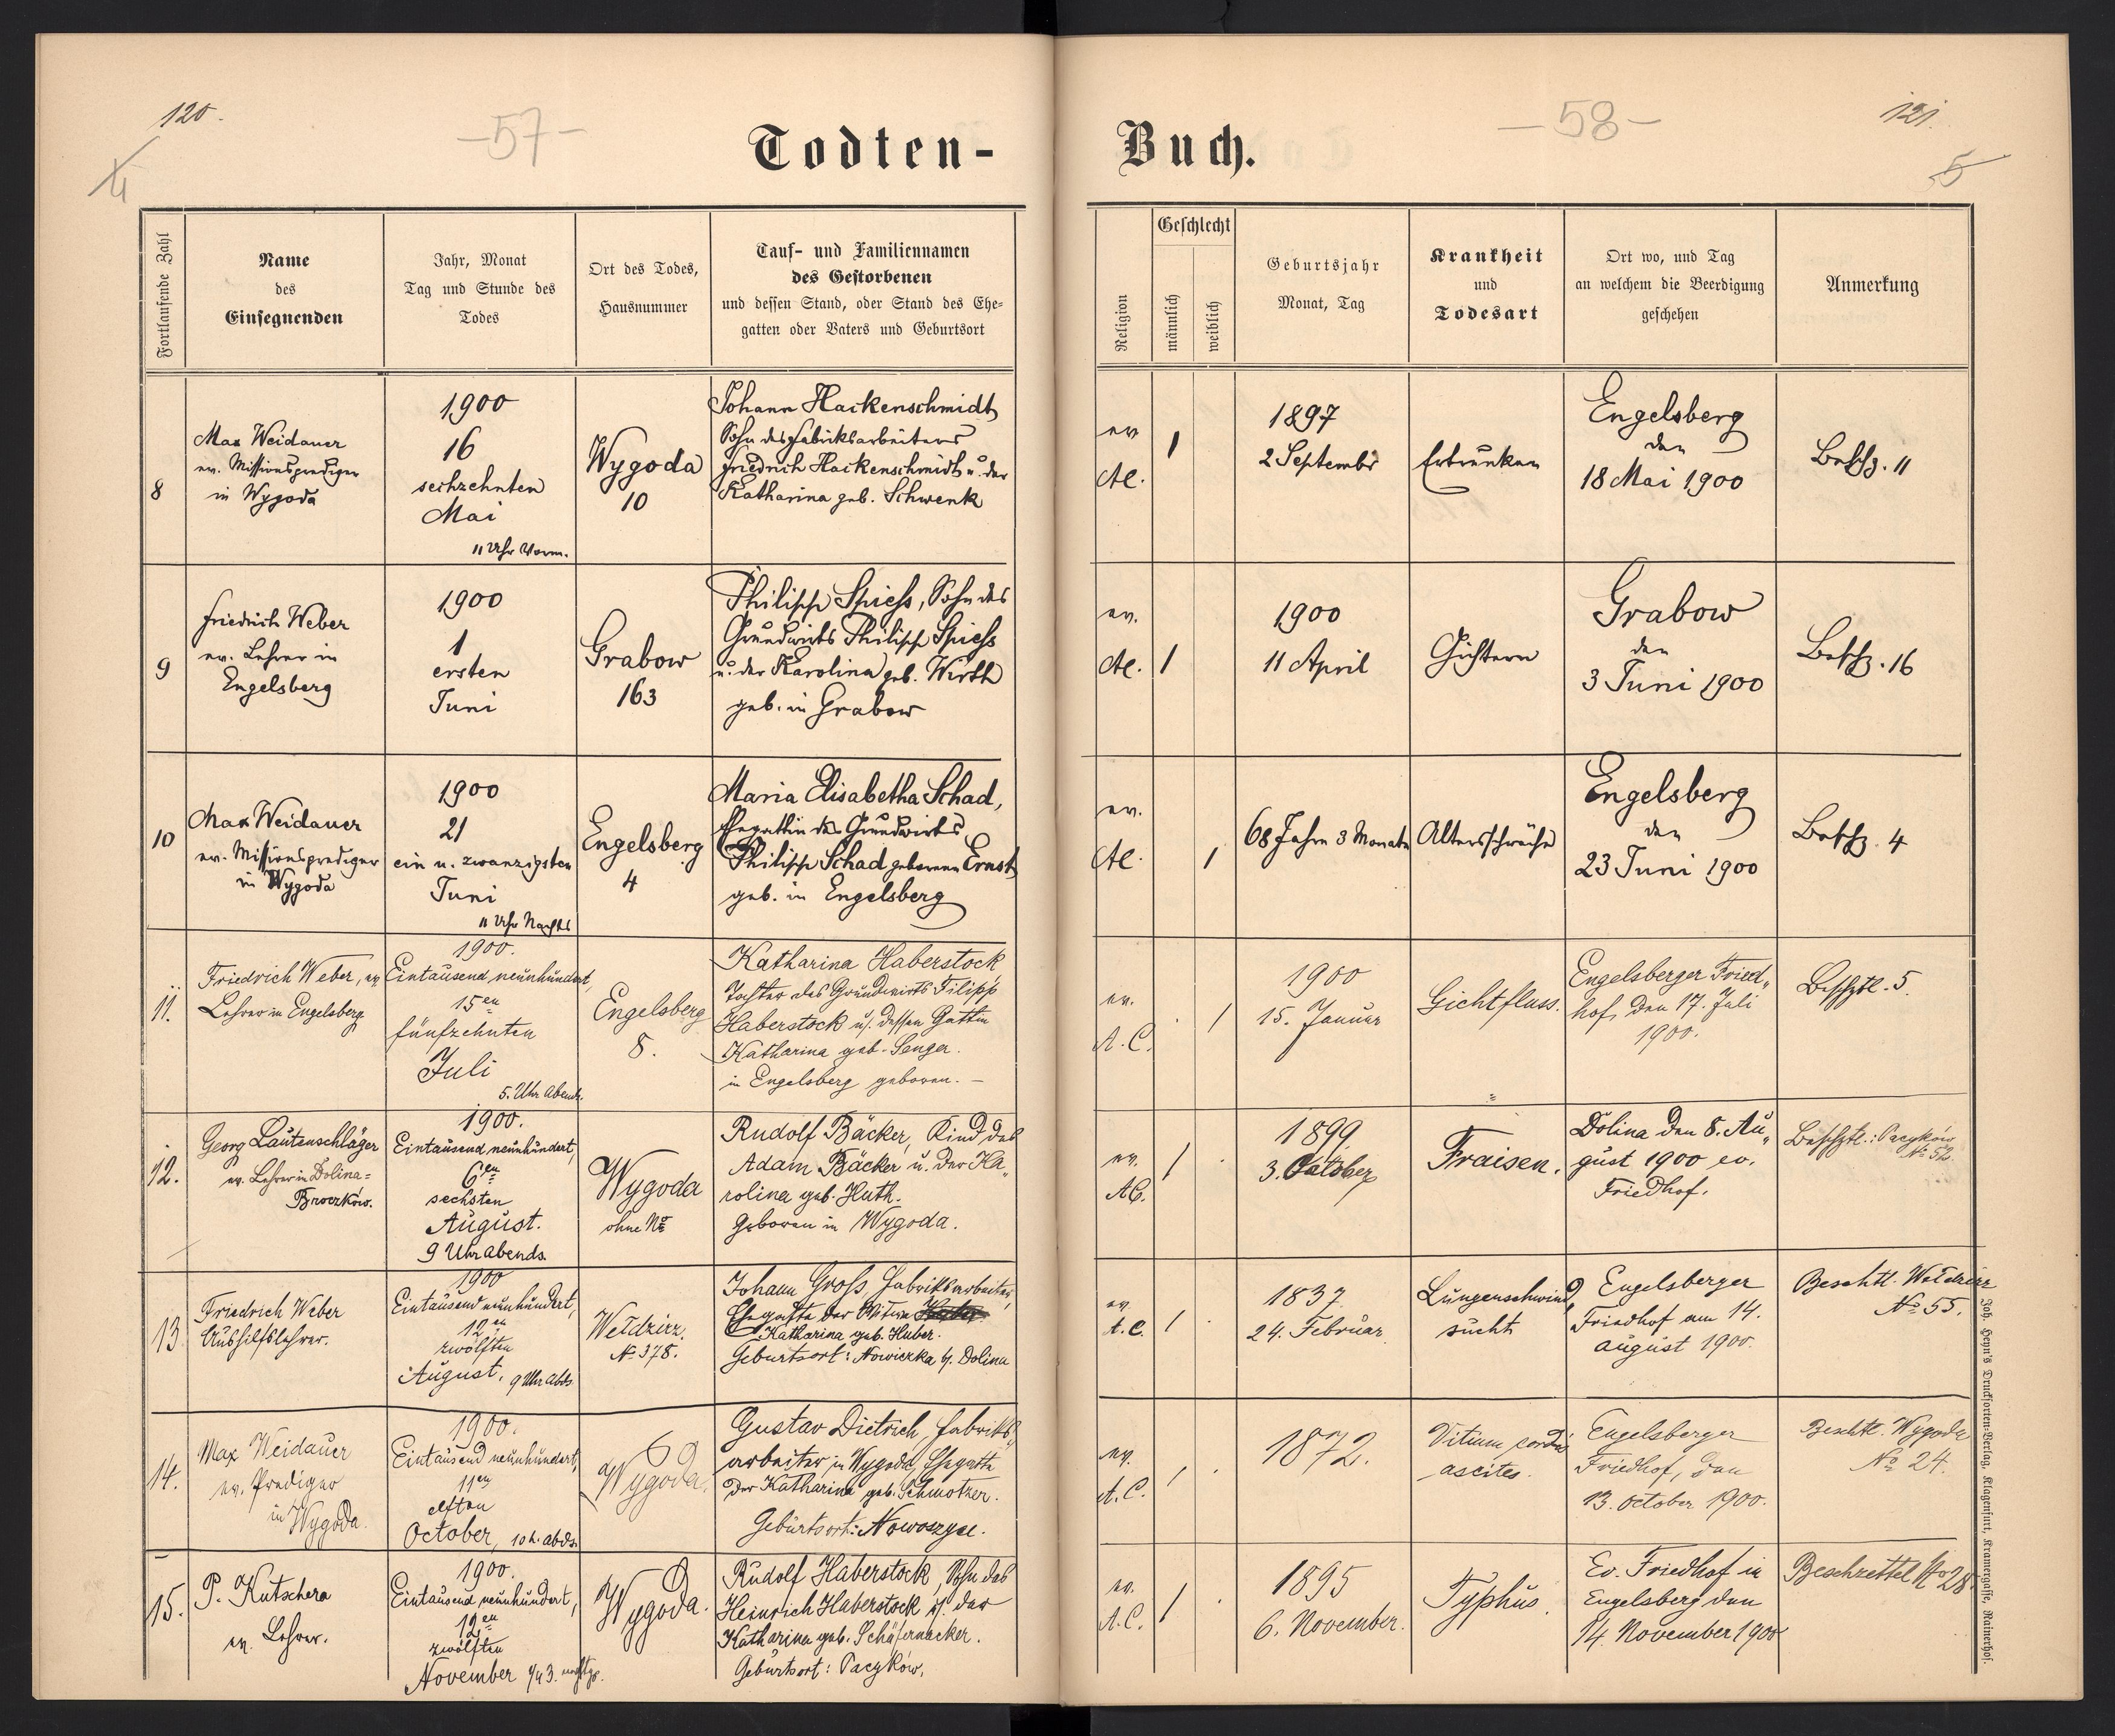 120.
121.
–57–
–58–
4
5
Todten-
Buch.
Fortlaufende Zahl
Name
des
Einsegnenden
Jahr, Monat
Tag und Stunde des
Todes
Ort des Todes,
Hausnummer
Tauf- und Familiennamen
des Gestorbenen
und dessen Stand, oder Stand des Ehe-
gatten oder Vaters und Geburtsort
Religion
Geschlecht
männlich
weiblich
Geburtsjahr
Monat, Tag
Krankheit
und
Todesart
Ort wo, und Tag
an welchem die Beerdigung
geschehen
Anmerkung
8
Max Weidauer
ev. Missionsprediger
in Wygoda
1900
16
sechzehnten
Mai
11 Uhr Vorm.
Wygoda
10
Johann Hackenschmidt
Sohn des Fabriksarbeiters
Friedrich Hackenschmidt u. der
Katharina geb. Schwenk
ev
AC.
1
1897
2 Septembr
Ertrunken
Engelsberg
den
18 Mai 1900
Beschz. 11
9
Friedrich Weber
ev. Lehrer in
Engelsberg
1900
1
ersten
Juni
Grabow
163
Philipp Spiess, Sohn des
Grundwirts Philipp Spiess
u. der Karolina geb. Wirth
geb. in Grabow
ev.
AC.
1
1900
11 April
Gichtern
Grabow
den
3 Juni 1900
Beschz. 16
10
Max Weidauer
ev. Missionsprediger
in Wygoda
1900
21
ein u. zwanzigsten
Juni
11 Uhr Nachts
Engelsberg
4
Maria Elisabetha Schad,
Ehegattin des Grundwirts
Philipp Schad geborene Ernst
geb. in Engelsberg
ev.
AC.
1
68 Jahre 3 Monate
Altersschwäche
Engelsberg
den
23 Juni 1900
Beschz. 4
11.
Friedrich Weber, ev
Lehrer in Engelsberg
1900.
Eintausend neunhundert,
15en
fünfzehnten
Juli
5. Uhr Abends.
Engelsberg
8.
Katharina Haberstock
Tochter des Grundwirts Filipp
Haberstock u. dessen Gattin
Katharina geb. Senger.
in Engelsberg geboren. –
ev.
A.C.
1
1900
15. Januar
Gichtfluss.
Engelsberger Fried„
hof, den 17. Juli
1900.
Beschztl. 5.
12.
Georg Lautenschläger
ev. Lehrer in Dolina=
Broczków.
1900.
Eintausend neunhundert,
6en
sechsten
August.
9 Uhr abends.
Wygoda
ohne No
Rudolf Bäcker, Kind des
Adam Bäcker u. der Ka„
rolina geb. Huth.
Geboren in Wygoda.
ev.
AC.
1
1899
3. October
Fraisen.
Dolina den 8. Au„
gust 1900 ev.
Friedhof.
Beschztl.: Pacyków
No 52.
13
Friedrich Weber
Aushilfslehrer.
1900
Eintausend neunhundert,
12en
zwölften
August, 9 Uhr abds
Wełdzirz.
No 378.
Johann Gross, Fabriksarbeiter,
Ehegatte der Witwe
Katharina geb. Huber.
Geburtsort: Nowiczka b. Dolina
ev.
A.C.
1
1837
24. Februar
Lungenschwind„
sucht
Engelsberger
Friedhof am 14.
august 1900.
Beschtl. Wełdzirz
No 55.
14.
Max Weidauer
ev. Prediger
in Wygoda.
1900.
Eintausend neunhundert,
11en
elften
October, 10 h. abds.
Wygoda.
Gustav Dietrich, Fabriks„
arbeiter in Wygoda, Ehegatte
der Katharina geb. Schmotzer.
Geburtsort: Nowoszyce.
ev.
A.C.
1
1872.
Vitium cordis
ascites.
Engelsberger
Friedhof, den
13. October 1900.
Beschtl. Wygoda
No 24.
15.
P. Kutschera
ev. Lehrer.
1900.
Eintausend neunhundert,
12en
zwölften
November
Wygoda.
Rudolf Haberstock, Sohn des
Heinrich Haberstock u. der
Katharina geb. Schäfernacker.
Geburtsort: Pacyków.
ev.
A.C.
1
1895
6. November.
Typhus.
Ev. Friedhof in
Engelsberg den
14. November 1900
Beschzettel No 28
Joh. Heyn's Drucksorten-Verlag, Klagenfurt, Kramergasse, Rainerhof.